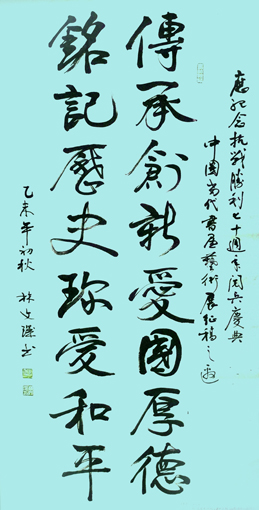 應紀念抗戰勝利七十週年閱兵慶典
中國當代書畫藝術展征稿之邀
傳承創新愛國厚德
銘記歷史珍愛和平
乙未年初秋 林文謹書